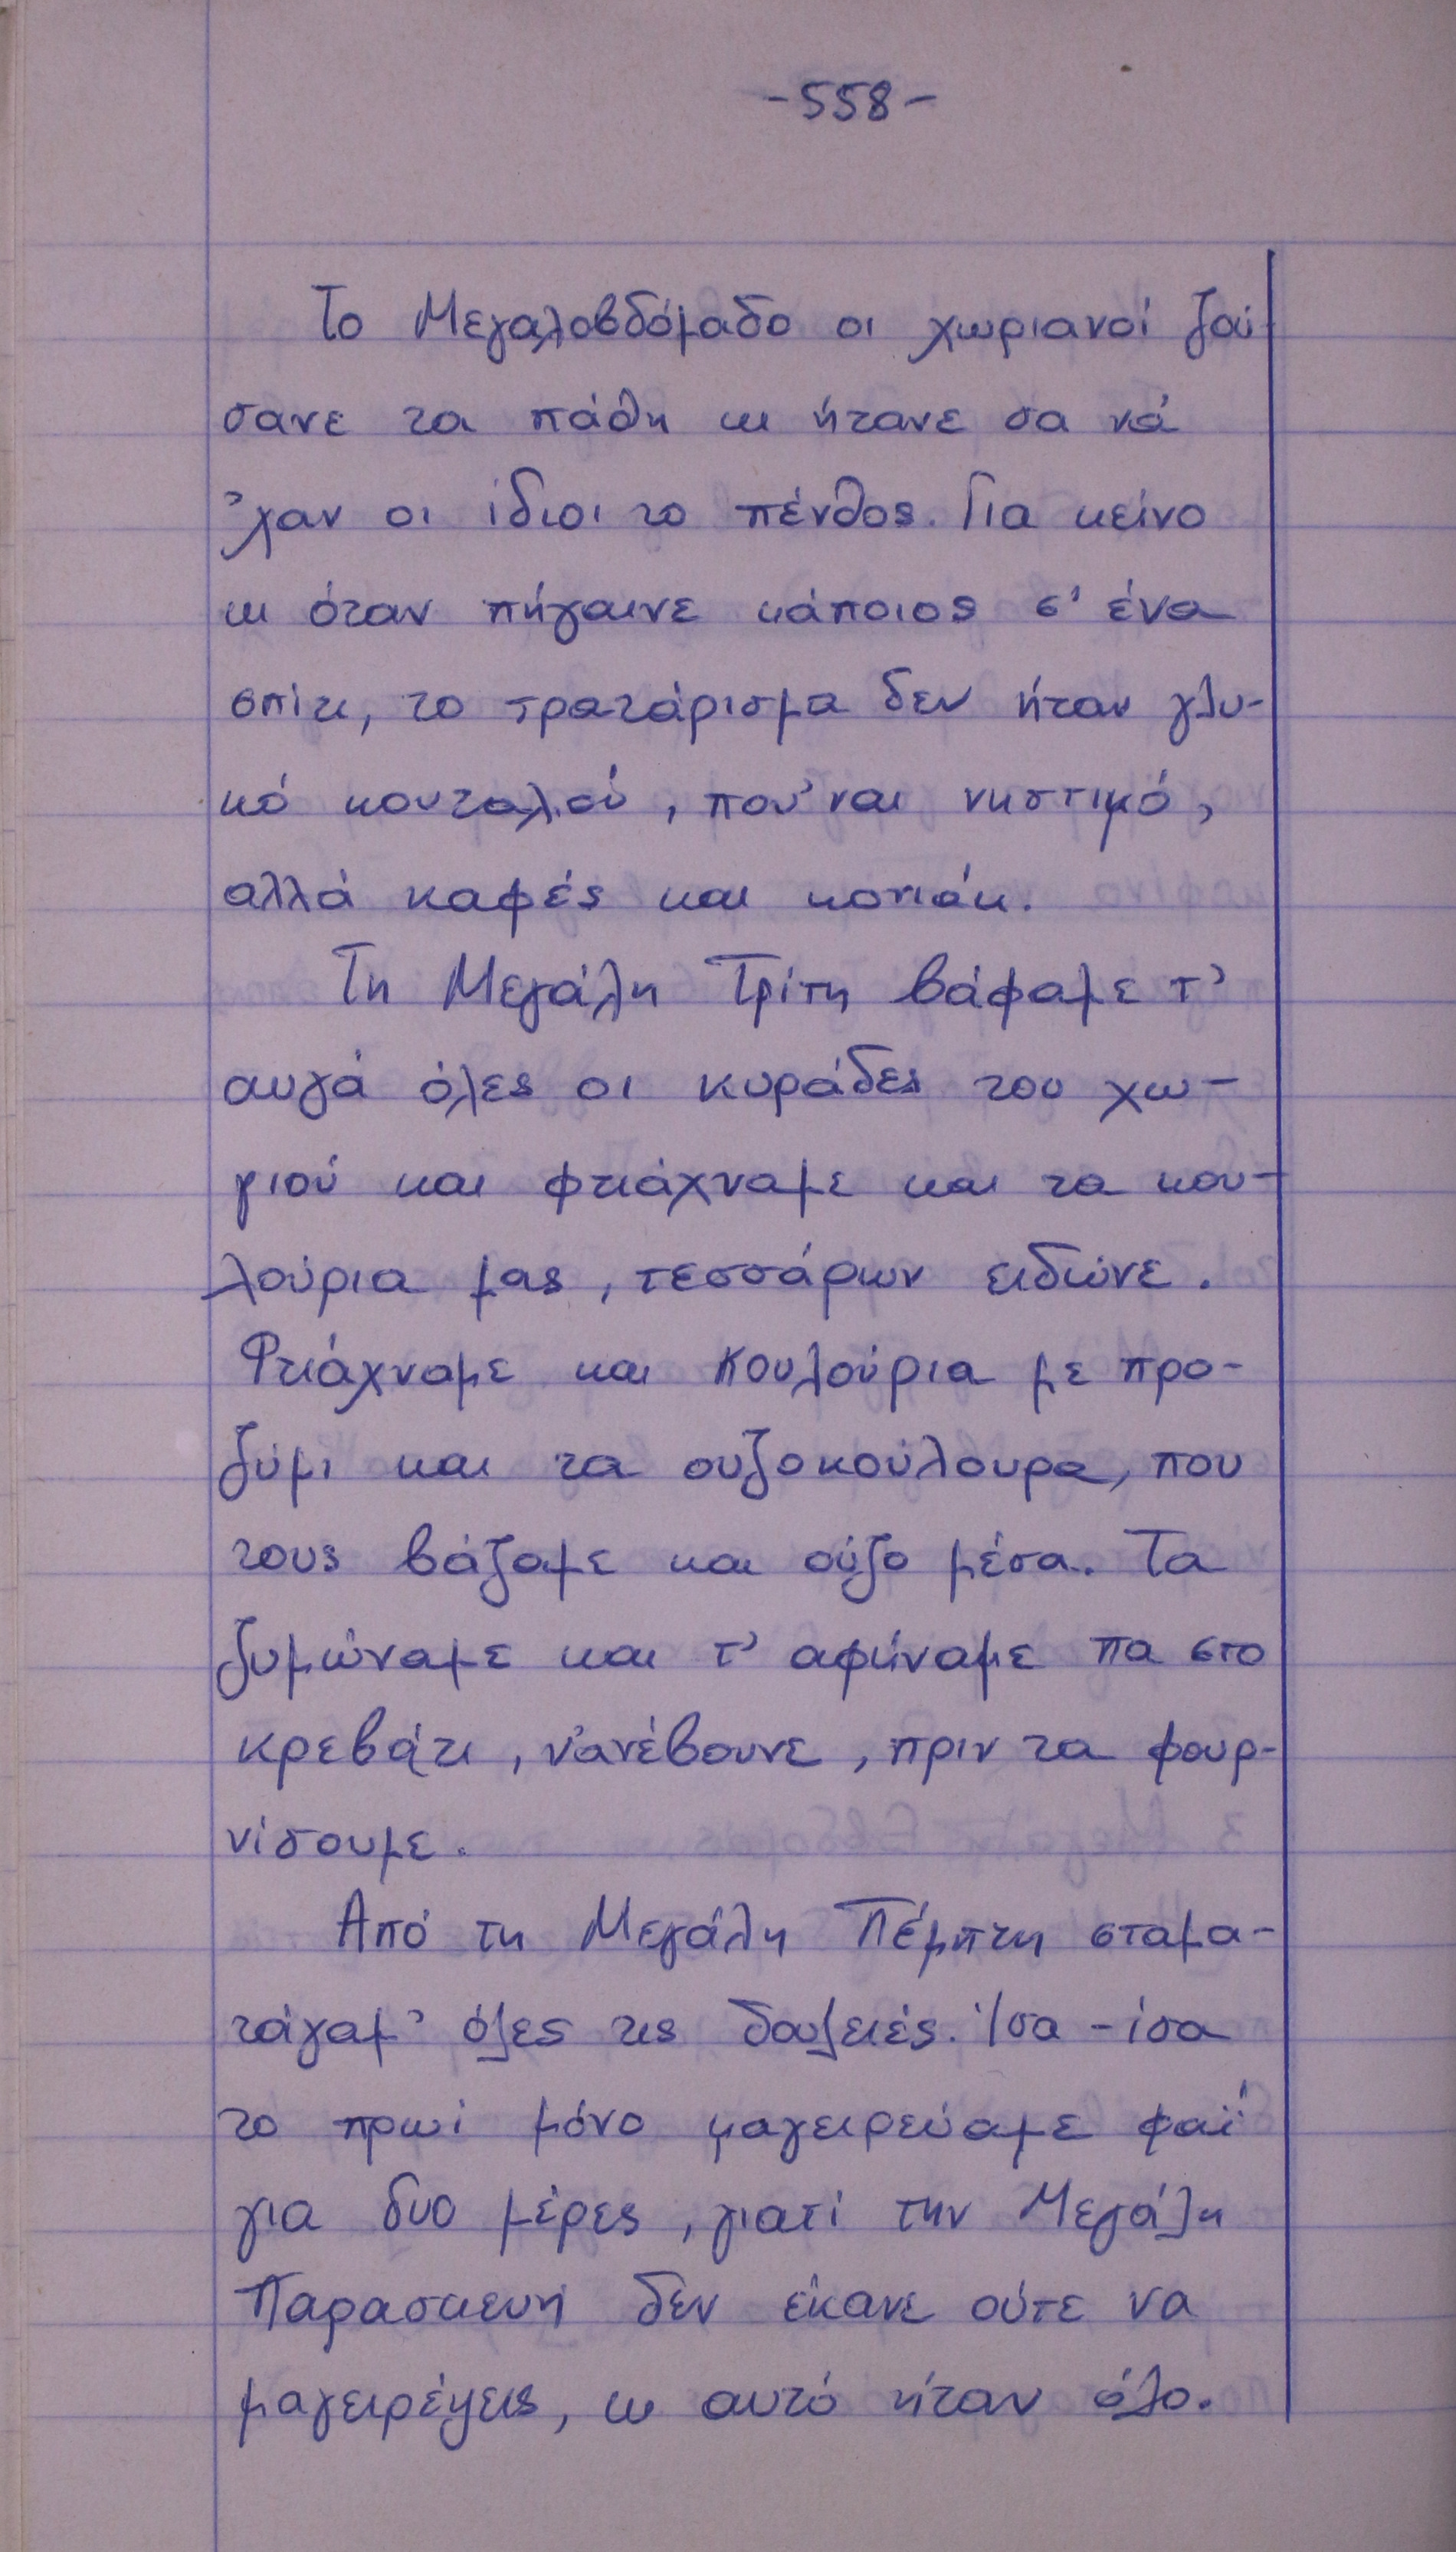 -558-
Το Μεγαλοβδόμαδο οι χωριανοί ζού-
σανε τα πάθη κι ήτανε σα νά
'χαν οι ίδιοι το πένθος. Για κείνο
κι όταν πήγαινε κάποιος σ' ένα
σπίτι, το τρατάρισμα δεν ήταν γλυ-
κό κουταλιού, που 'ναι νηστικό,
αλλά καφές και κονιάκ.
Τη Μεγάλη Τρίτη βάφαμε τ'
αυγά όλες οι κυράδες του χω-
ριού και φτιάχναμε και τα κου-
λούρια μας, τεσσάρων ειδώνε.
Φτιάχναμε και κουλούρια με προ-
ζύμι και τα ουζοκούλουρα, που
τους βάζαμε και ούζο μέσα. Τα
ζυμώναμε και τ' αφήναμε πα στο
κρεβάτι, ν' ανέβουνε, πριν τα φουρ-
νίσουμε.
Από τη Μεγάλη Πέμπτη σταμα-
τάγαμ' όλες τις δουλειές. Ίσα-ίσα
το πρωί μόνο μαγειρεύαμε φαΐ
για δυο μέρες, γιατί την Μεγάλη
Παρασκευή δεν έκανε ούτε να
μαγειρέψεις, κι αυτό ήταν όλο.